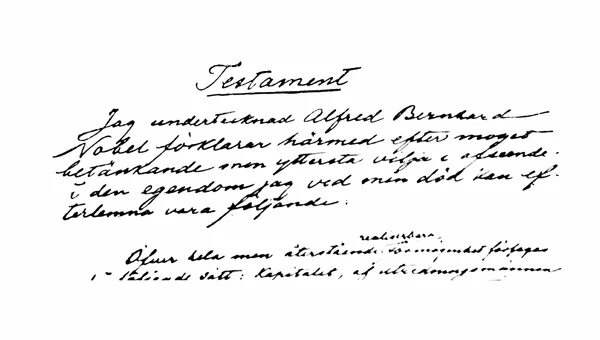 Testament
Jag undertecknad Alfred Bernhard
Nobel förklarar härmed efter moget
betänkande min yttersta vilja i afseende
i den egendom jag vid min död kan ef-
terlemna vara följande:
realiserbara
Öfver hela min återstående förmögenhet förfogas
i följande sätt: Kapitalet, af utredningsmännen